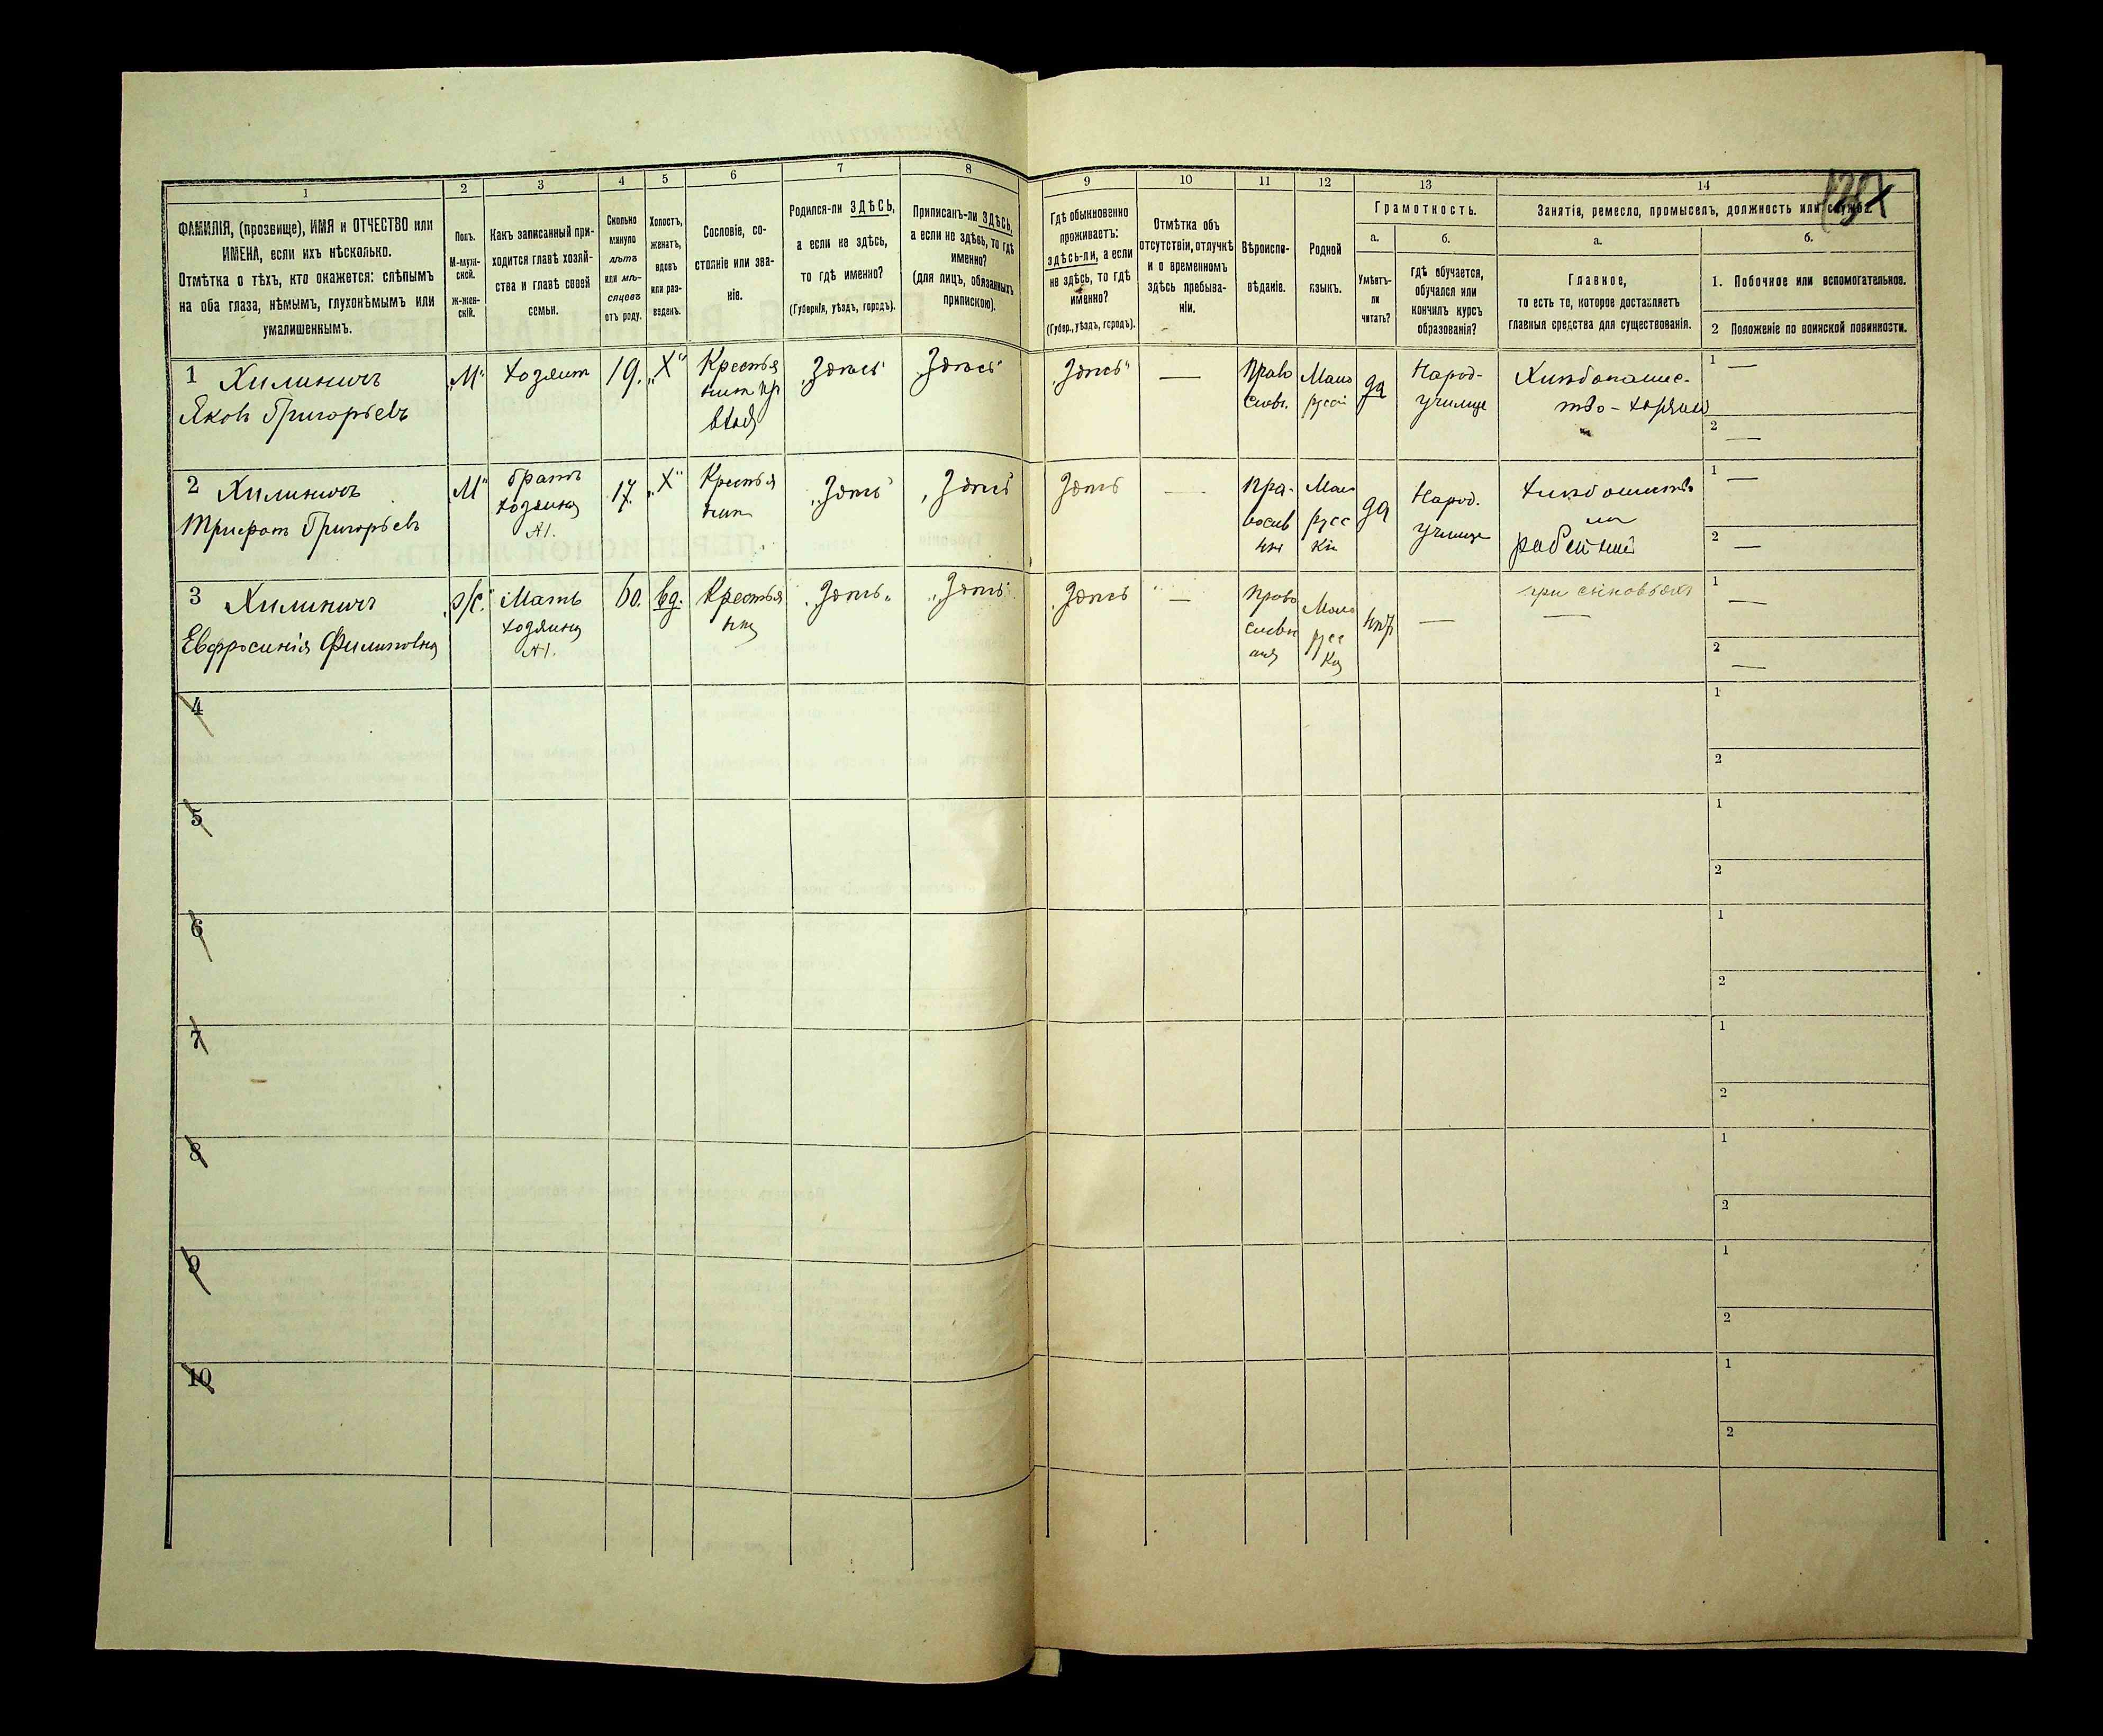 1
2
3
4
5
6
7
8
9
10
11
12
13
14
ФАМИЛІЯ, (прозвище), ИМЯ и ОТЧЕСТВО или
ИМЕНА, если ихъ нѣсколько.
Отмѣтка о тѣхъ, кто окажется: слѣпымъ
на оба глаза, нѣмымъ, глухонѣмымъ или
умалишеннымъ.
Полъ.
М-муж-
ской.
Ж-жен-
скій.
Какъ записанный при-
ходится главѣ хозяй-
ства и главѣ своей
семьи.
Сколько
минуло
лѣтъ
или мѣ-
сяцевъ
отъ роду.
Холостъ,
женатъ,
вдовъ
или раз-
веденъ.
Сословіе, со-
стояніе или зва-
ніе.
Родился-ли ЗДѢСЬ,
а если не здѣсь,
то гдѣ именно?
(Губернія, уѣздъ, городъ).
Приписанъ-ли ЗДѢСЬ,
а если не здѣсь, то гдѣ
именно?
(для лицъ, обязанныхъ
припискою).
Гдѣ обыкновенно
проживаетъ:
здѣсь-ли, а если
не здѣсь, то гдѣ
именно?
(Губер., уѣздъ, городъ).
Отмѣтка объ
отсутствіи, отлучкѣ
и о временномъ
здѣсь пребыва-
ніи.
Вѣроиспо-
вѣданіе.
Родной
языкъ.
Грамотность.
а.
Умѣетъ-
ли
читать?
б.
гдѣ обучается,
обучался или
кончилъ курсъ
образованія?
Занятія, ремесло, промыселъ, должность или служба.
а.
Главное,
то есть то, которое доставляетъ
главныя средства для существованія.
б.
1. Побочное или вспомогательное.
2 Положеніе по воинской повинности.
1 Хилиничъ
Яковъ Григорьевъ
„М“
хозяинъ
19.
„Х“
Крестья
нинъ
„Здѣсь“
„Здѣсь“
„Здѣсь“
—
Право
славн.
Мало
русс
да
Народ-
училище
Хлѣбопашес-
тво - хозяинъ
1 —
2 —
2 Хилиничъ
Трифонъ Григорьевъ
„М“
братъ
хозяина
№1.
17.
„Х“
Крестья
нинъ
„Здѣсь“
„Здѣсь“
Здѣсь
—
Пра-
восла
Мало
русс
кій
да
Народ.
училище
1 —
2 —
3 Хилиничъ
Евфросинія Филиповна
„Ж.“
Мать
хозяина
№1.
60.
вд.
Крестья
нка
„Здѣсь“
„Здѣсь“
„Здѣсь“
—
Право
славн
ая
Мало
русс
ка
нѣт
—
при сыновьяхъ
—
1 —
2 —
4
1
2
5
1
2
6
1
2
7
1
2
8
1
2
9
1
2
10
1
2